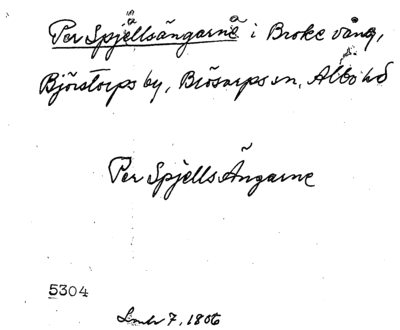 Per Spjällsängarna i Broke vång,
Björstorps by, Brösarps sn, Albo hd
Per Spjells Ängarne
5304
7, 1806